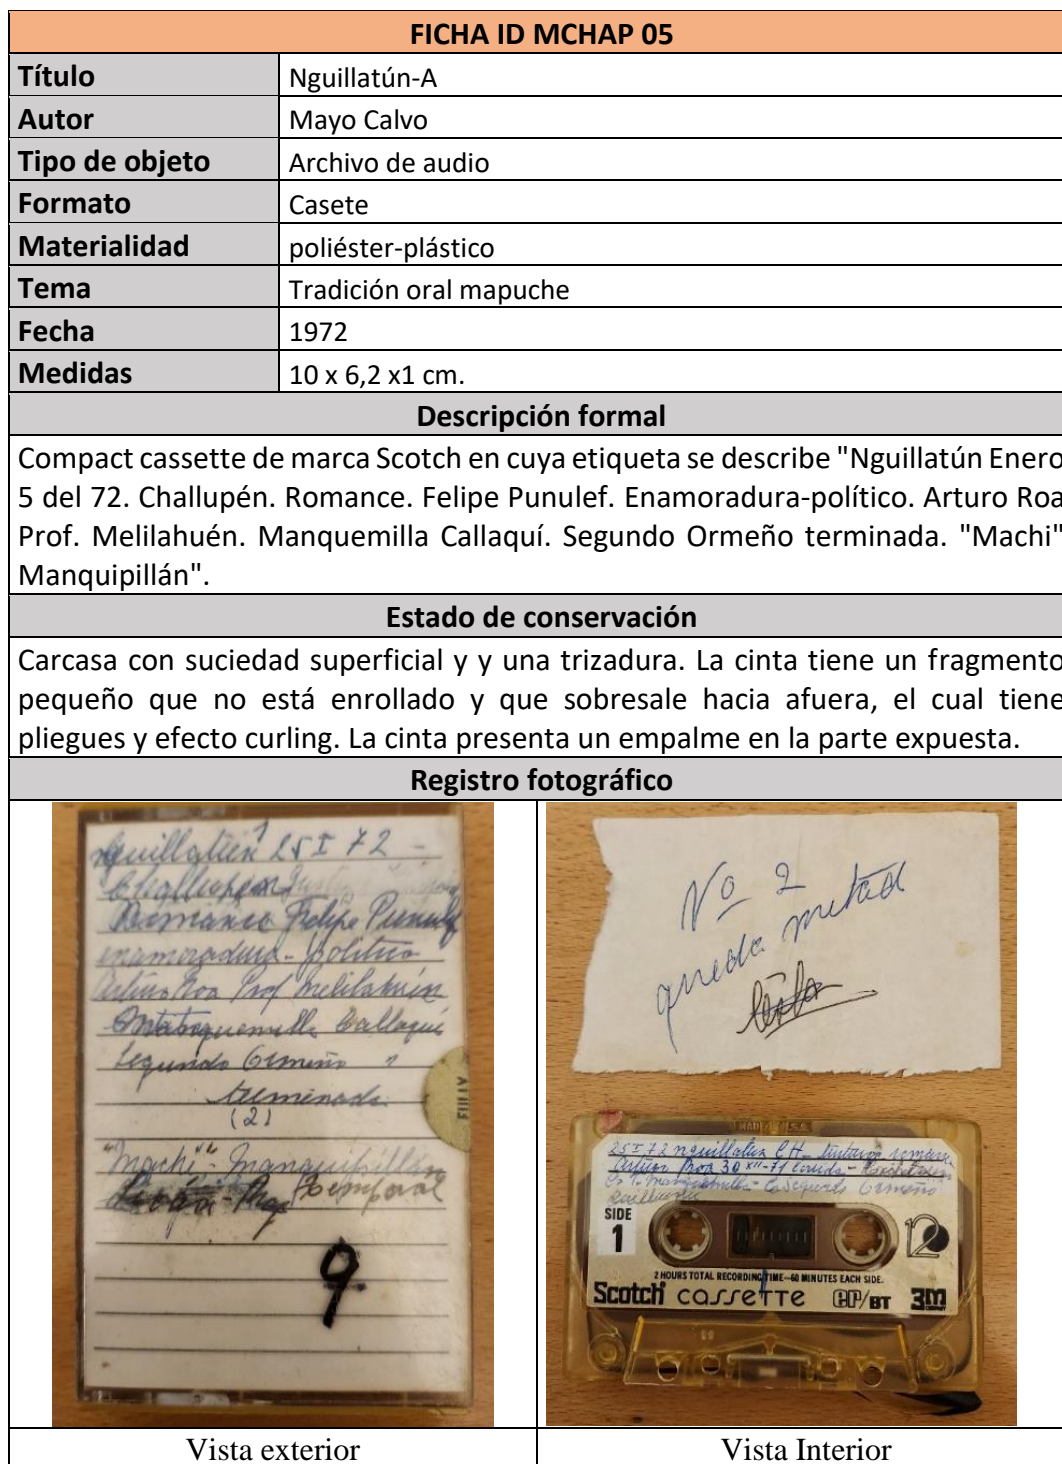 FICHA ID MCHAP 05
Título Nguillatún-A
Autor Mayo Calvo
Tipo de objeto Archivo de audio
Formato Casete
Materialidad poliéster-plástico
Tema Tradición oral mapuche
Fecha 1972
Medidas 10 x 6,2 x1 cm.
Descripción formal
Compact cassette de marca Scotch en cuya etiqueta se describe "Nguillatún Enero
5 del 72. Challupén. Romance. Felipe Punulef. Enamoradura-político. Arturo Roa
Prof. Melilahuén. Manquemilla Callaquí. Segundo Ormeño terminada. "Machi"
Manquipillán".
Estado de conservación
Carcasa con suciedad superficial y y una trizadura. La cinta tiene un fragmento
pequeño que no está enrollado y que sobresale hacia afuera, el cual tiene
pliegues y efecto curling. La cinta presenta un empalme en la parte expuesta.
Registro fotográfico
nguillatún 25 I 72 -
Challupen
Romance Felipe Punulef
enamoradura - político
Arturo Roa Prof Melilahuén
Callaquí
Segundo Ormeño "
terminada
(2)
"Machi" - Manquipillán
Temporal
9
FULLY
Nº 2
queda mitad
25 I 72 nguillatun CH-
Arturo Roa 30 XII-71
Segundo Ormeño
SIDE
1
120
2 HOURS TOTAL RECORDING TIME-60 MINUTES EACH SIDE.
Scotch cassette er/BT 3M
COMPANY
Vista exterior
Vista Interior